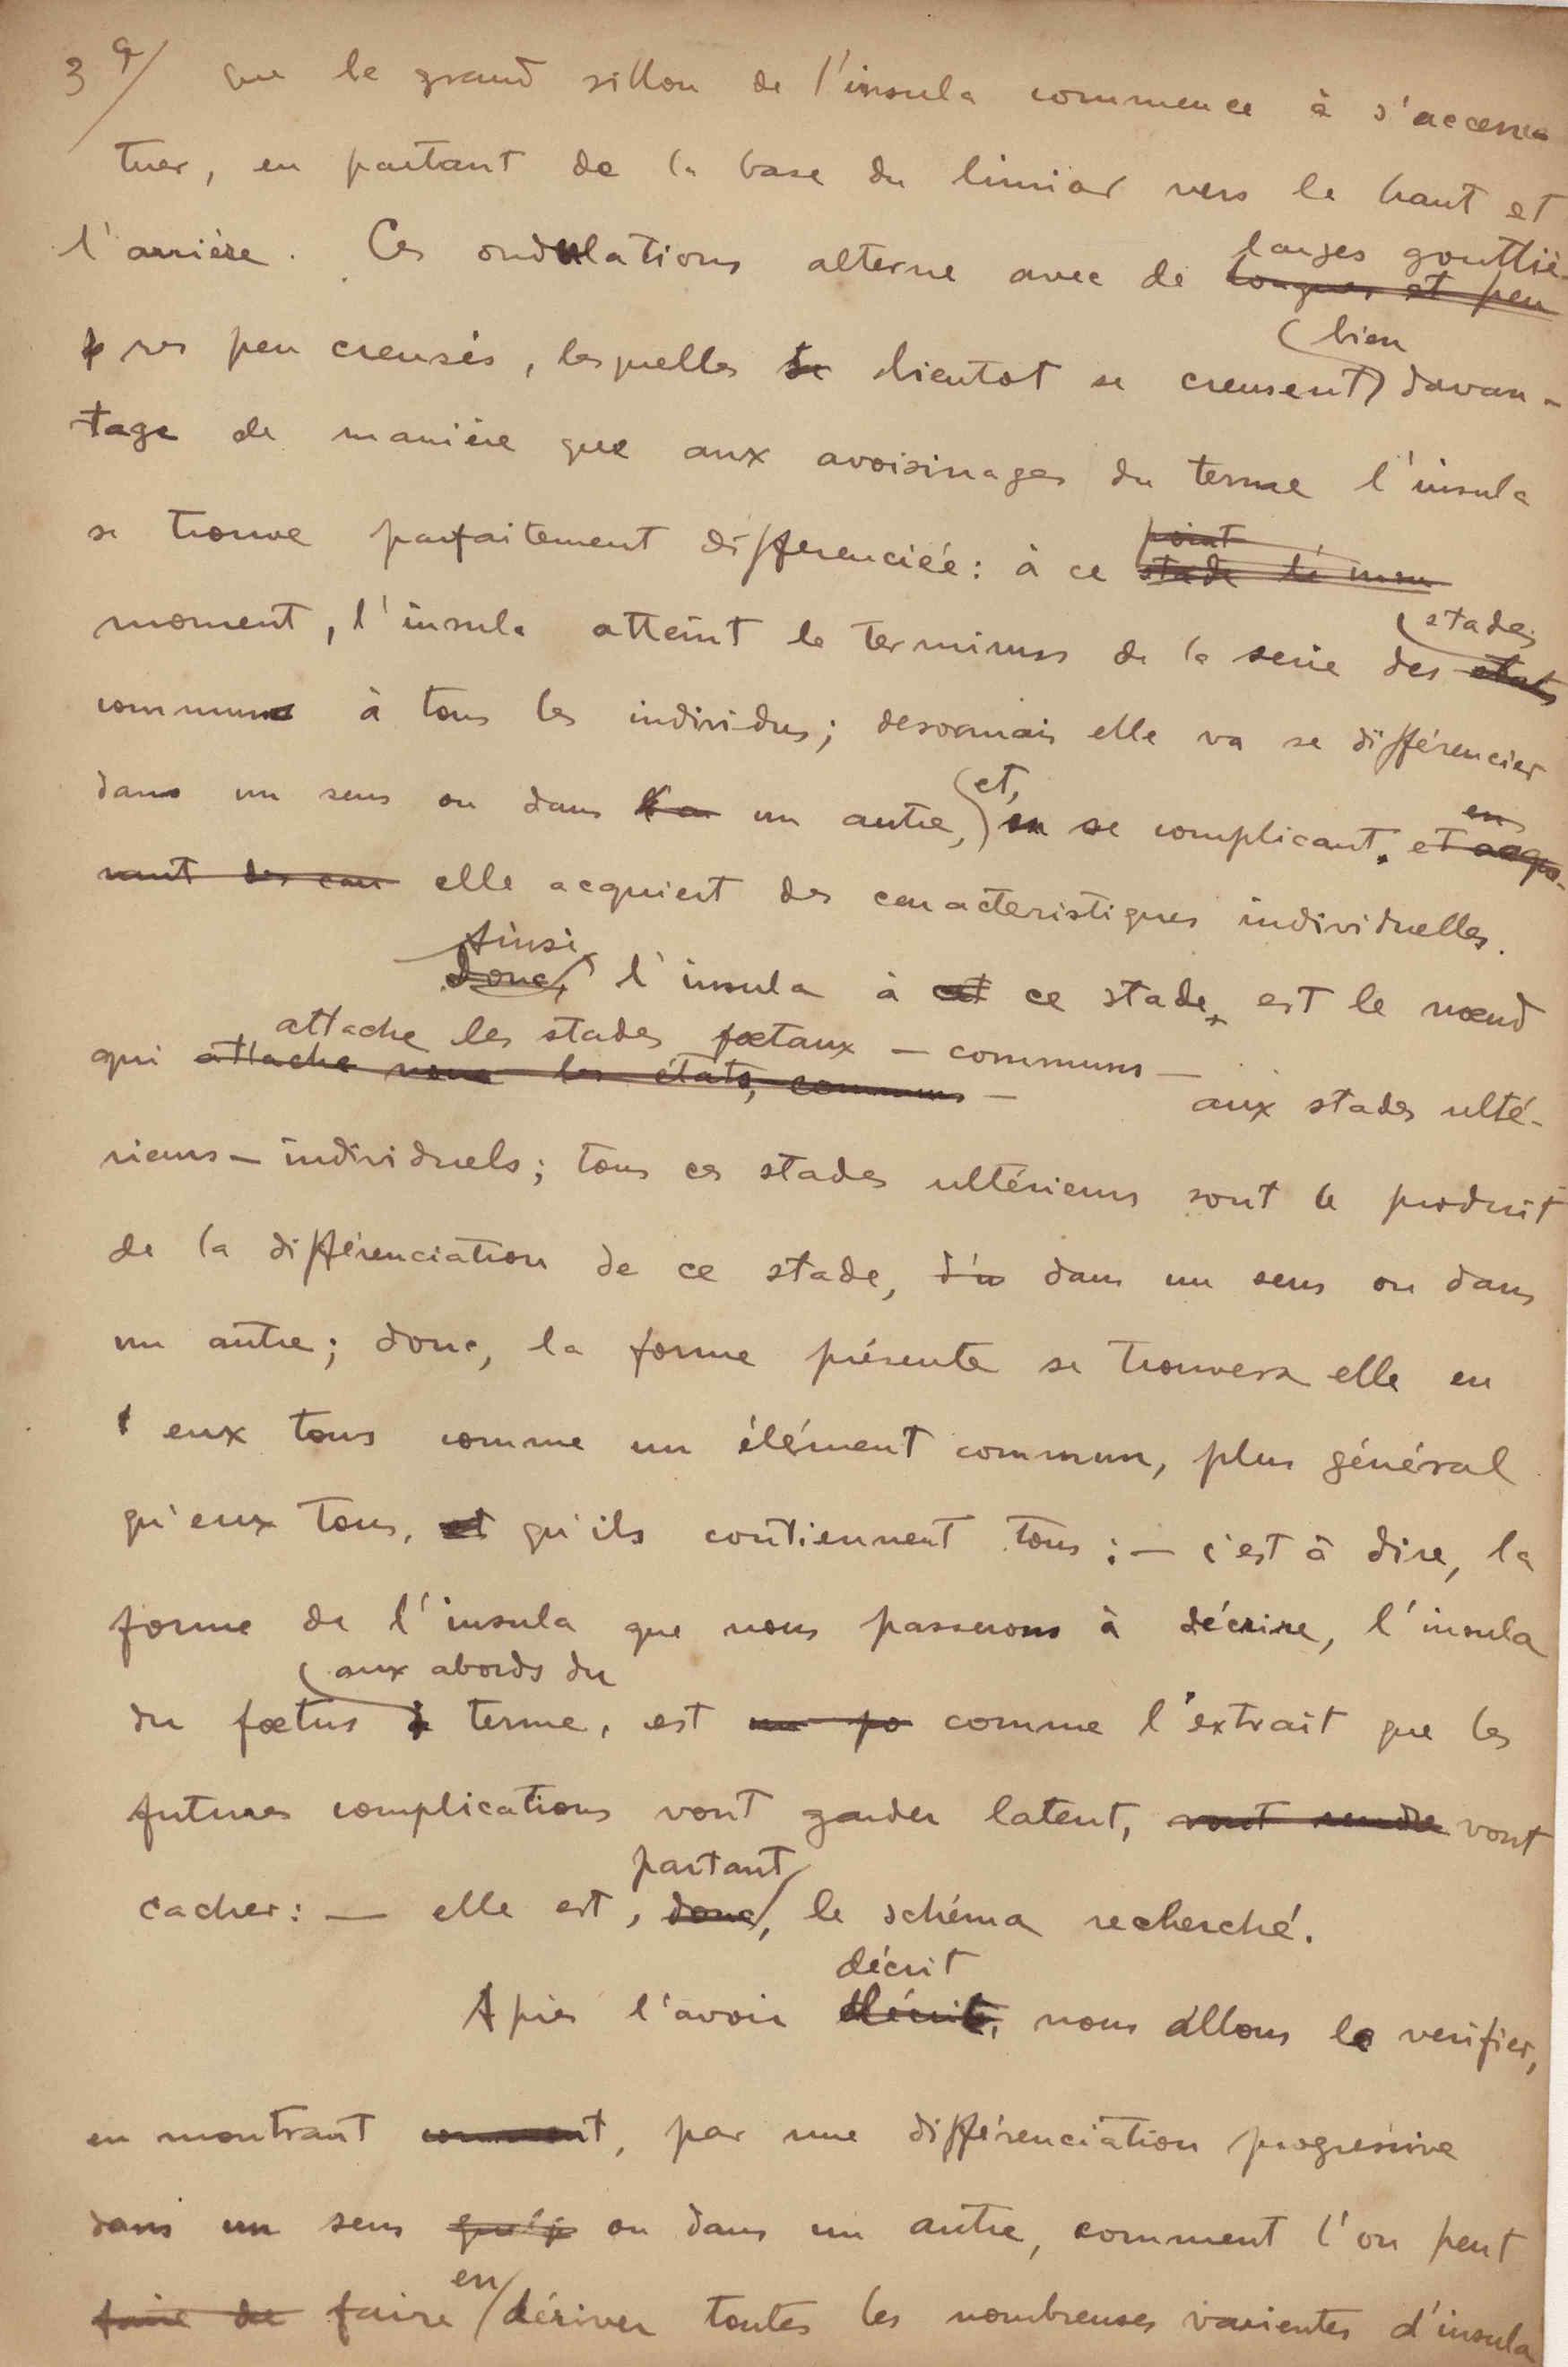 3 a/ que le grand sillon de l'insula commence à s'accen
tuer, en partant de la base du limiar vers le haut et
larges gouttiè-
l'arrière. Ces ondulations alterne avec de longues et peu
bien
res peu creusés, lesquelles se bientot se creusent davan-
tage de manière que aux avoisinages du terme l'insula
point
se trouve parfaitement différenciée: à ce stade
stades
moment, l'insula atteint le terminus de la serie des etats
communs à tous les individus; desormais elle va se différencier
et, en
dans un sens ou dans un autre, en se complicant. et
elle acquiert des caracteristiques individuelles.
Ainsi
donc, l'insula à cet ce stade, est le nœud
attache les stades fœtaux — communs —
qui attache nous les états, communs — aux stades ulté-
rieurs — individuels; tous ces stades ultérieurs sont le produit
de la différenciation de ce stade, d'u dans un sens ou dans
un autre; donc, la forme présente se trouvera elle en
eux tous comme un élément commun, plus général
qu'eux tous, et qu'ils contiennent tous: — c'est à dire, la
forme de l'insula que nous passerons à décrire, l'insula
aux abords du
du fœtus à terme, est un po comme l'extrait que les
futures complications vont garder latent, vont rendre vont
partant
cacher: — elle est, donc, le schéma recherché.
décrit
Après l'avoir nous allons le verifier,
en montrant comment, par une différenciation progressive
dans un sens ou dans un autre, comment l'on peut
en
faire de faire dériver toutes les nombreuses varientes d'insula